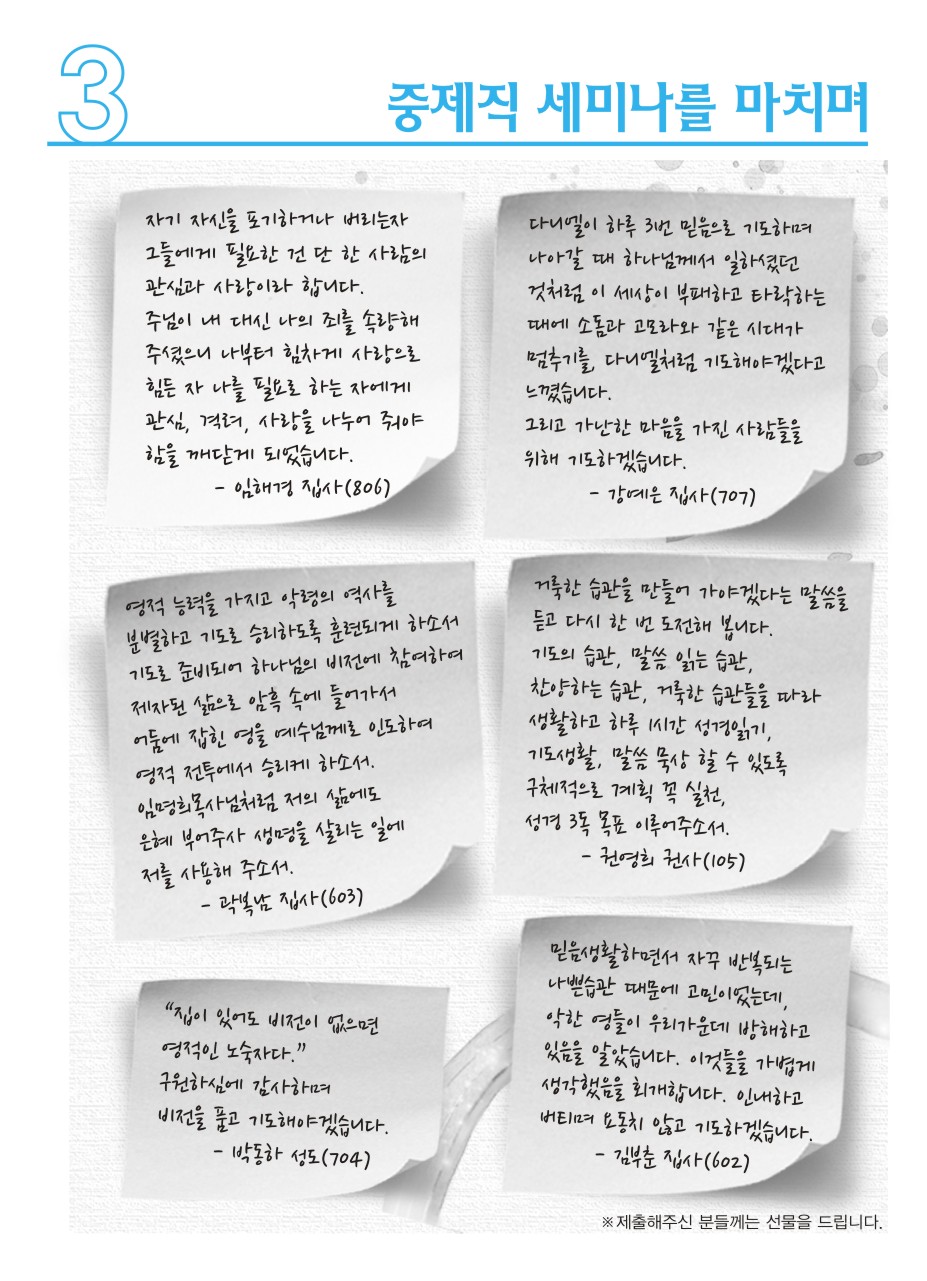 3
중제직 세미나를 마치며
자기 자신을 포기하거나 버리는자
그들에게 필요한 건 단 한 사람의
관심과 사랑이라 합니다.
주님이 내 대신 나의 죄를 속량해
주셨으니 나부터 힘차게 사랑으로
힘든 자 나를 필요로 하는 자에게
관심, 격려, 사랑을 나누어 줘야
함을 깨닫게 되었습니다.
- 임해경 집사(806)
다니엘이 하루 3번 믿음으로 기도하며
나아갈 때 하나님께서 일하셨던
것처럼 이 세상이 부패하고 타락하는
때에 소돔과 고모라와 같은 시대가
멈추기를, 다니엘처럼 기도해야겠다고
느꼈습니다.
그리고 가난한 마음을 가진 사람들을
위해 기도하겠습니다.
- 강예은 집사(707)
영적 능력을 가지고 악령의 역사를
분별하고 기도로 승리하도록 훈련되게 하소서
기도로 준비되어 하나님의 비전에 참여하여
제자된 삶으로 암흑 속에 들어가서
어둠에 잡힌 영을 예수님께로 인도하여
영적 전투에서 승리케 하소서.
임명희목사님처럼 저의 삶에도
은혜 부어주사 생명을 살리는 일에
저를 사용해 주소서.
- 곽복남 집사(603)
거룩한 습관을 만들어 가야겠다는 말씀을
듣고 다시 한 번 도전해 봅니다.
기도의 습관, 말씀 읽는 습관,
찬양하는 습관, 거룩한 습관들을 따라
생활하고 하루 1시간 성경읽기,
기도생활, 말씀 묵상 할 수 있도록
구체적으로 계획 꼭 실천,
성경 3독 목표 이루어주소서.
- 권영희 권사(105)
"집이 있어도 비전이 없으면
영적인 노숙자다."
구원하심에 감사하며
비전을 품고 기도해야겠습니다.
- 박동하 성도(704)
믿음생활하면서 자꾸 반복되는
나쁜습관 때문에 고민이었는데,
악한 영들이 우리가운데 방해하고
있음을 알았습니다. 이것들을 가볍게
생각했음을 회개합니다. 인내하고
버티며 요동치 않고 기도하겠습니다.
- 김부춘 집사(602)
※ 제출해주신 분들께는 선물을 드립니다.